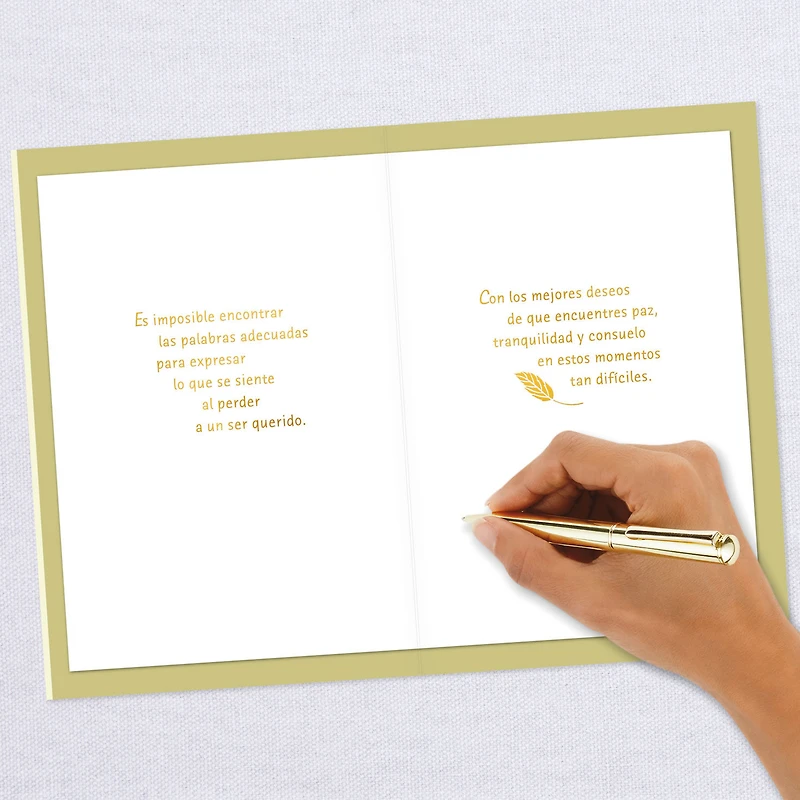 Es imposible encontrar
las palabras adecuadas
para expresar
lo que se siente
al perder
a un ser querido.
Con los mejores deseos
de que encuentres paz,
tranquilidad y consuelo
en estos momentos
tan difíciles.